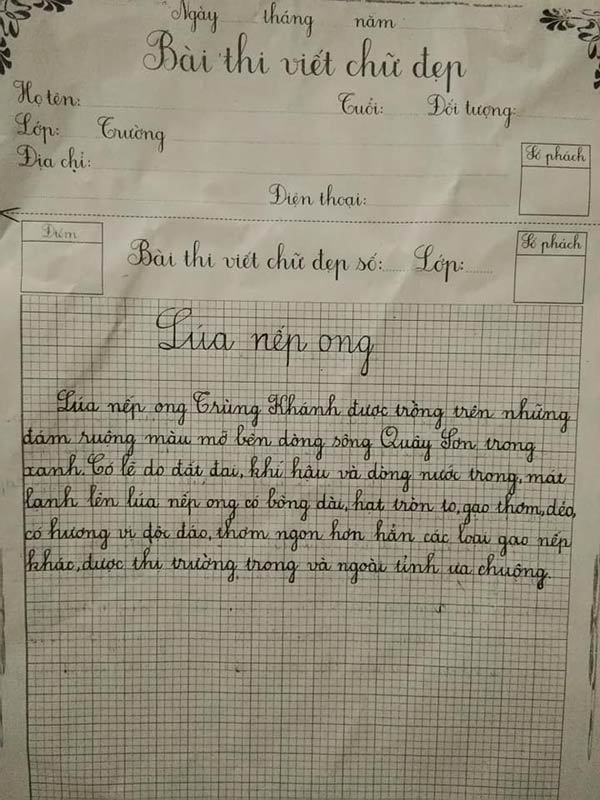 Ngày tháng năm
Bài thi viết chữ đẹp
Họ tên: Tuổi: Đối tượng:
Lớp: Trường
Địa chỉ:
Số phách
Điện thoại:
Điểm
Bài thi viết chữ đẹp số: Lớp:
Số phách
Lúa nếp ong
Lúa nếp ong Trùng Khánh được trồng trên những
đám ruộng màu mỡ bên dòng sông Quây Sơn trong
xanh. Có lẽ do đất đai, khí hậu và dòng nước trong, mát
lanh lên lúa nếp ong có bông dài, hạt tròn to, gạo thơm, dẻo,
có hương vị độc đáo, thơm ngon hơn hẳn các loại gạo nếp
khác, được thị trường trong và ngoài tỉnh ưa chuộng.